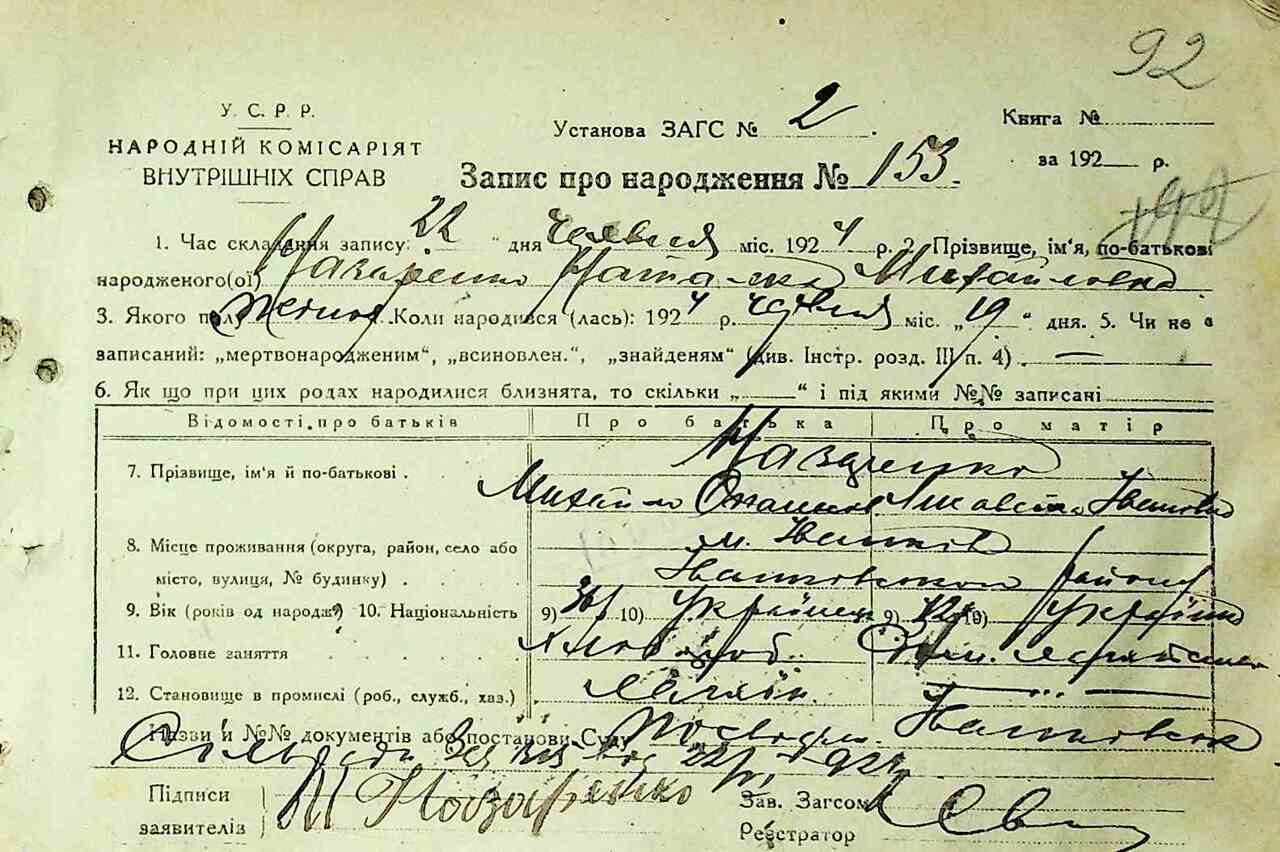 92
У. С. Р. Р.
НАРОДНІЙ КОМІСАРІЯТ
ВНУТРІШНІХ СПРАВ
Установа ЗАГС № 2.
Книга №
за 192 р.
Запис про народження № 153.
1. Час складення запису: 22 " дня червня міс. 1924 р. 2. Прізвище, ім'я, по-батькові
народженого(ої) Назаренко Наталка Михайловна
3. Якого полу жіноч. Коли народився (лась): 1924 р. червня міс. „19" дня. 5. Чи не є
записаний: „мертвонародженим", „всиновлен.", „знайденям" (див. Інстр. розд. III п. 4) —
6. Як що при цих родах народилися близнята, то скільки „ " і під якими №№ записані
Відомості про батьків Про батька Про матір
7. Прізвище, ім'я й по-батькові . Назаренко
Михайло Івановна
8. Місце проживання (округа, район, село або м. Іванків
місто, вулиця, № будинку) . Іванковского району
9. Вік (років од народж.) 10. Національність 9) 36 10) Українець 9) 10) Українка
11. Головне заняття хлібороб.
12. Становище в промислі (роб., служб., хаз.) хазяїн.
Назви й №№ документів або постанови Суду Посвідч. Іванковск
Сільради за від 22/VI 1924
Підписи
заявителів М Назаренко
Зав. Загсом
Реєстратор